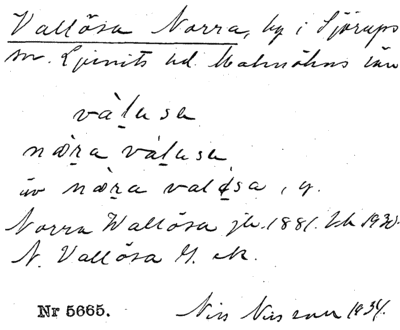 Vallösa Norra, by i Sjörups
sn. Ljunits hd. Malmöhus län
và̱lusa
næ̀ra vàlusa
äv næ̀ra valø̀sa, y.
Norra Wallösa jb. 1881. 1930.
N. Vallösa G. eK.
Nr 5665. Nils Nilsson 1934.